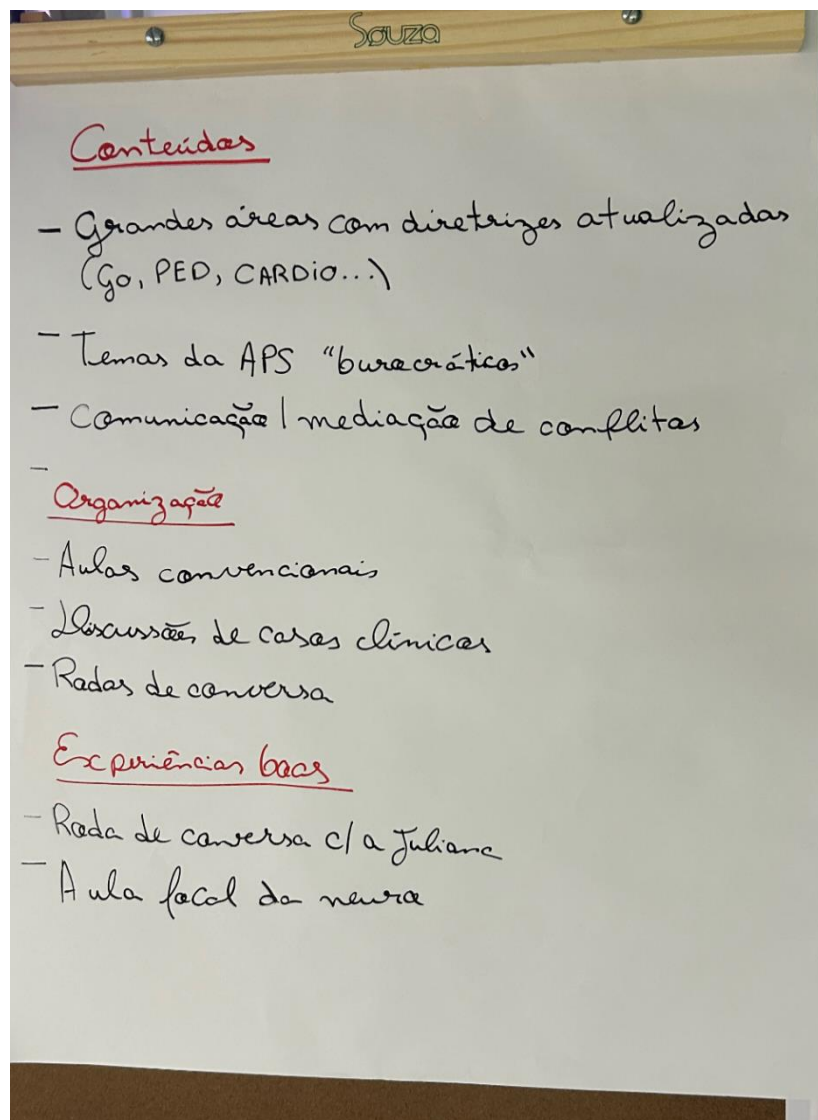 Souza
Conteúdos
- Grandes áreas com diretrizes atualizadas
(GO, PED, CARDiO...)
- Temas da APS "burocráticos"
- Comunicação / mediação de conflitos
-
Organização
- Aulas convencionais
- Discussões de casos clínicos
- Rodas de conversa
Experiências boas
- Roda de conversa c/ a Juliana
- Aula focal da neuro